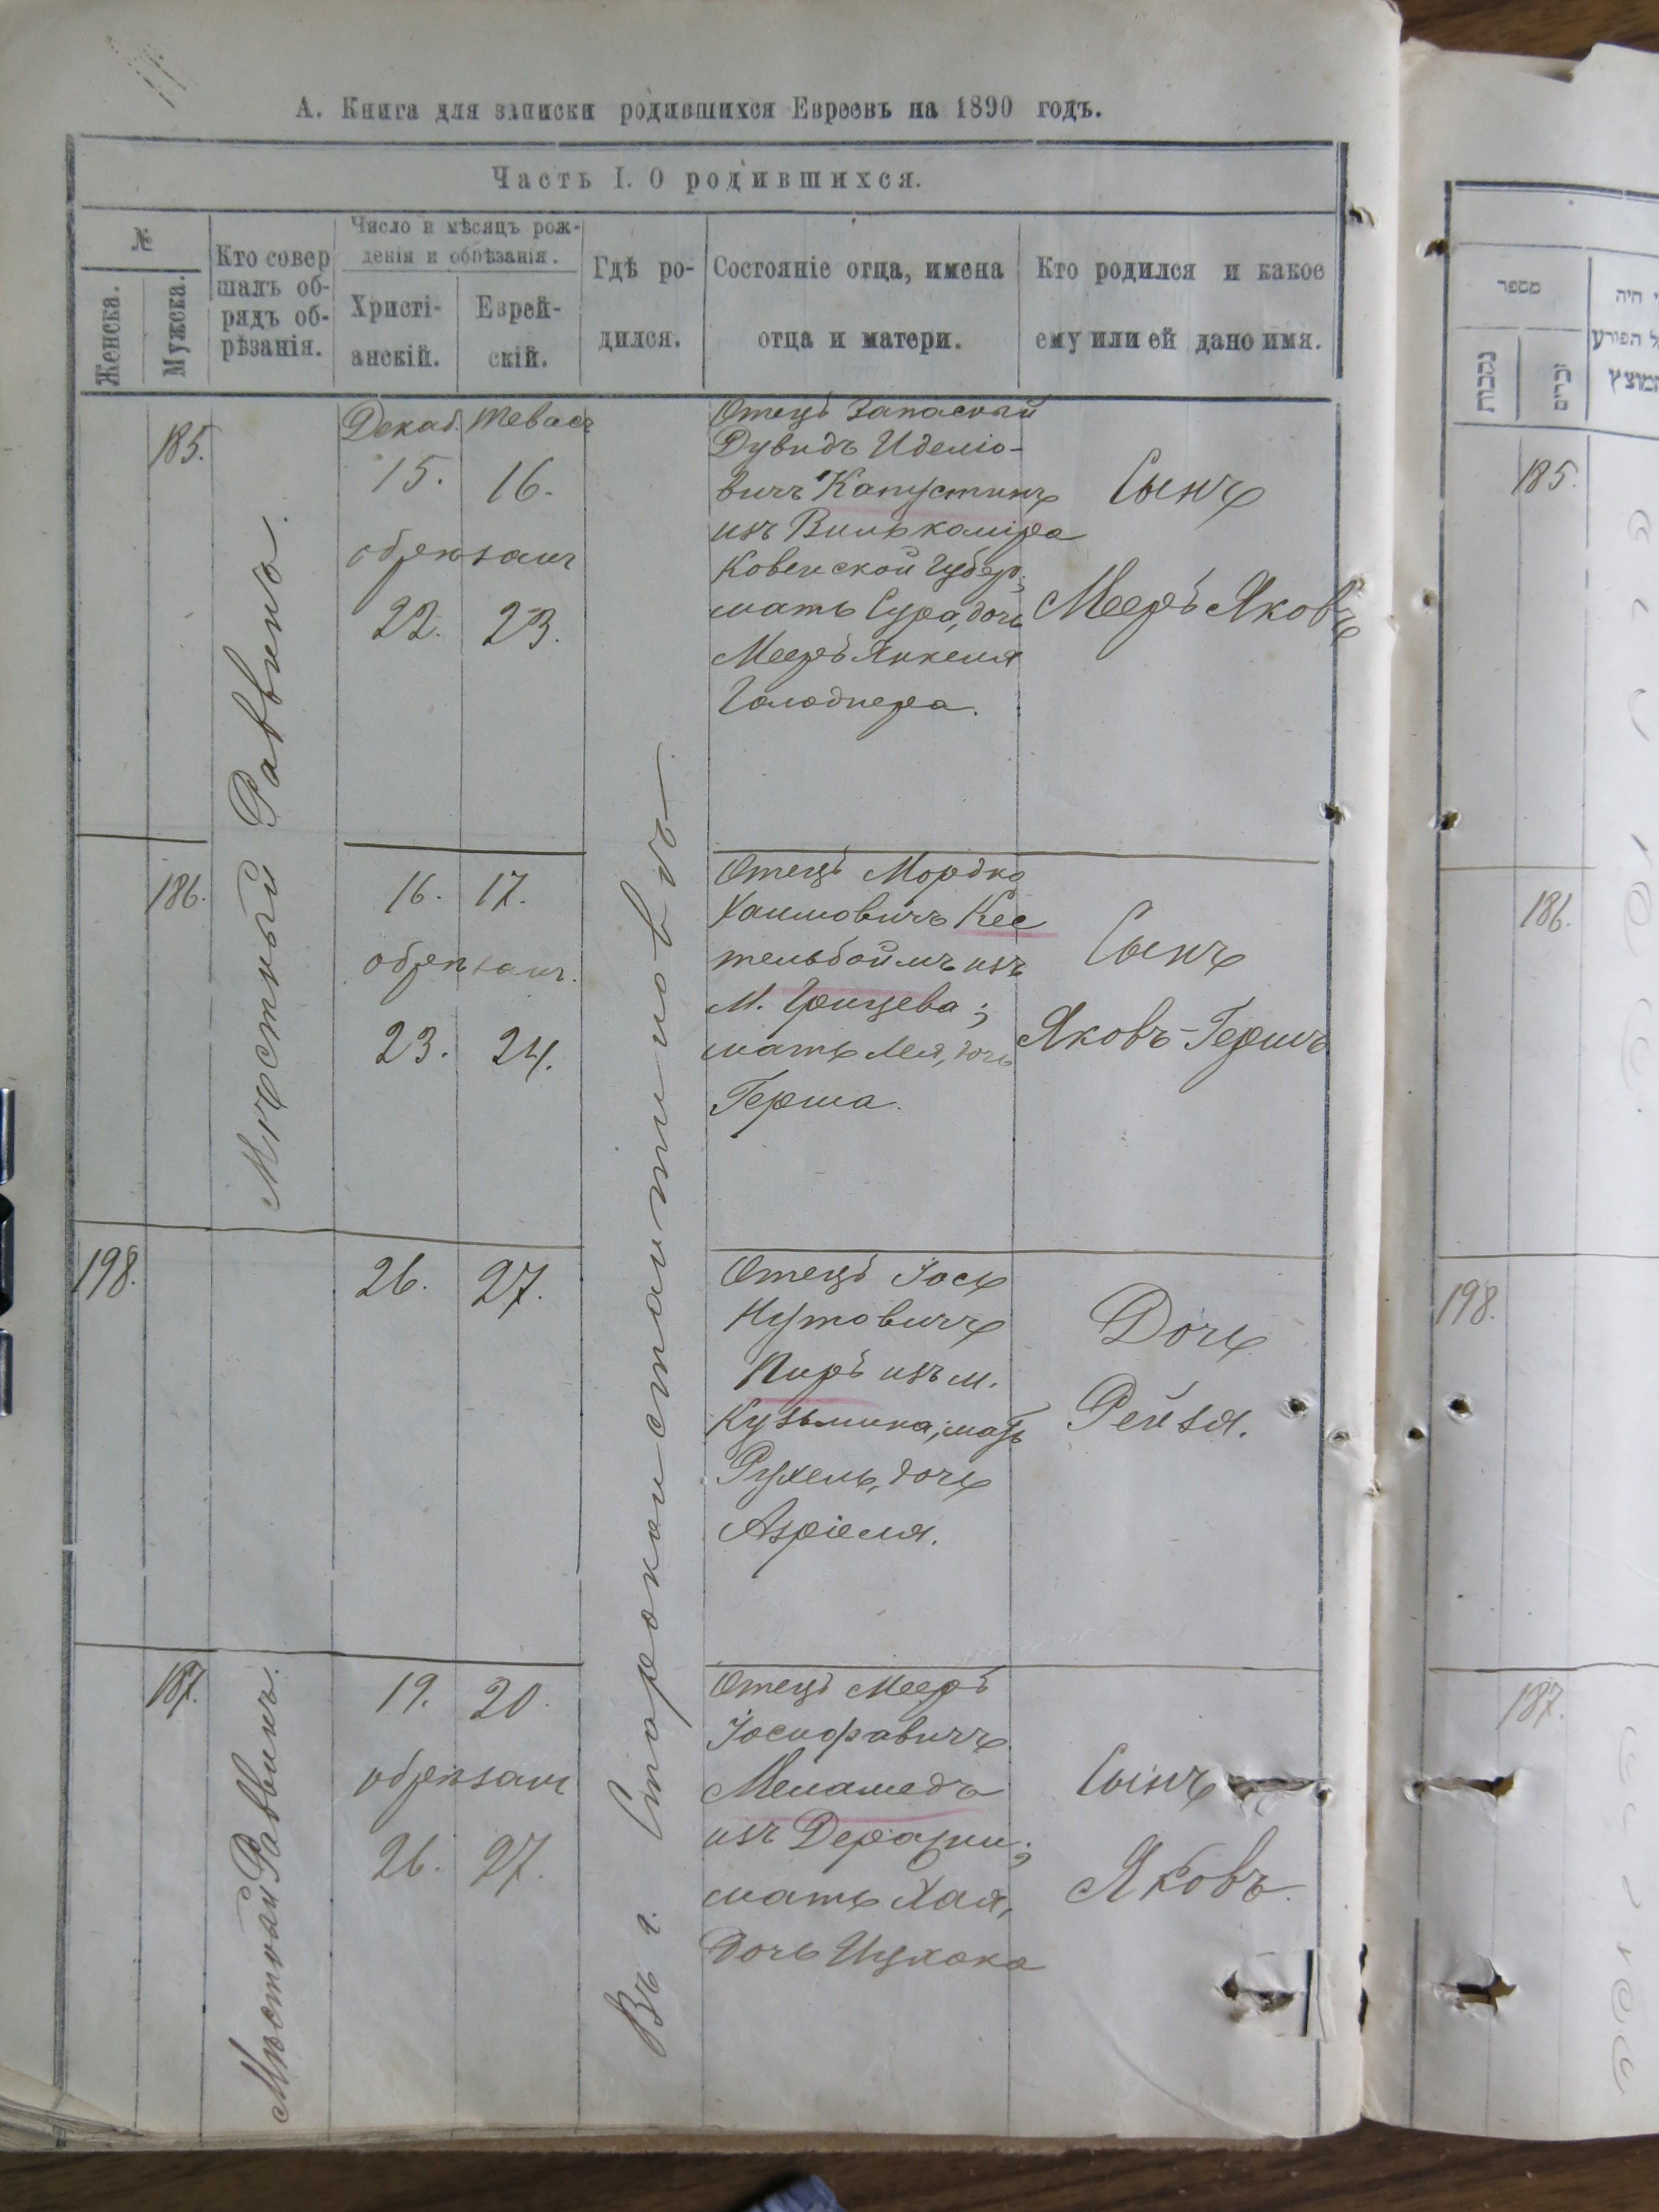 А. Книга для записки родившихся Евреевъ на 1890 годъ.
Часть I. О родившихся.
№
Женска.
Мужска.
Кто совер
шалъ об-
рядъ об-
рѣзанія.
Число и мѣсяцъ рож-
денія и обрѣзанія.
Христі-
анскій.
Еврей-
скій.
Гдѣ ро-
дился.
Состояніе отца, имена
отца и матери.
Кто родился и какое
ему или ей дано имя.
Мѣстный Раввинъ.
Въ г. Староконстантиновѣ
185.
Декаб. Тевасъ
15. 16.
обрѣзанъ
22. 23.
Отецъ Запасный
Дувидъ Иделіо-
вичъ Капустинъ
изъ Вилькоміра
Ковенской Губер.;
мать Сура, дочь
Мееръ Янкеля
Голоднера.
Сынъ
Мееръ Яковъ
186.
16. 17.
обрѣзанъ.
23. 24.
Отецъ Мордко
Хаимовичъ Кес
тельбоймъ изъ
м. Грицева;
мать Лея, дочь
Герша.
Сынъ
Яковъ-Гершъ
198.
26. 27.
Отецъ Іось
Нутовичъ
Пиръ изъ м.
Кузьмина; мать
Рухель, дочь
Азріеля.
Дочь
Рейзя.
187.
Мѣстный Раввинъ.
19. 20.
обрѣзанъ
26. 27.
Отецъ Мееръ
Іосифовичъ
Меламедъ
изъ Деражни;
мать Хая,
дочь Ицхока
Сынъ
Яковъ.
מספר
נקבות
זכרים
185.
186.
198.
187.